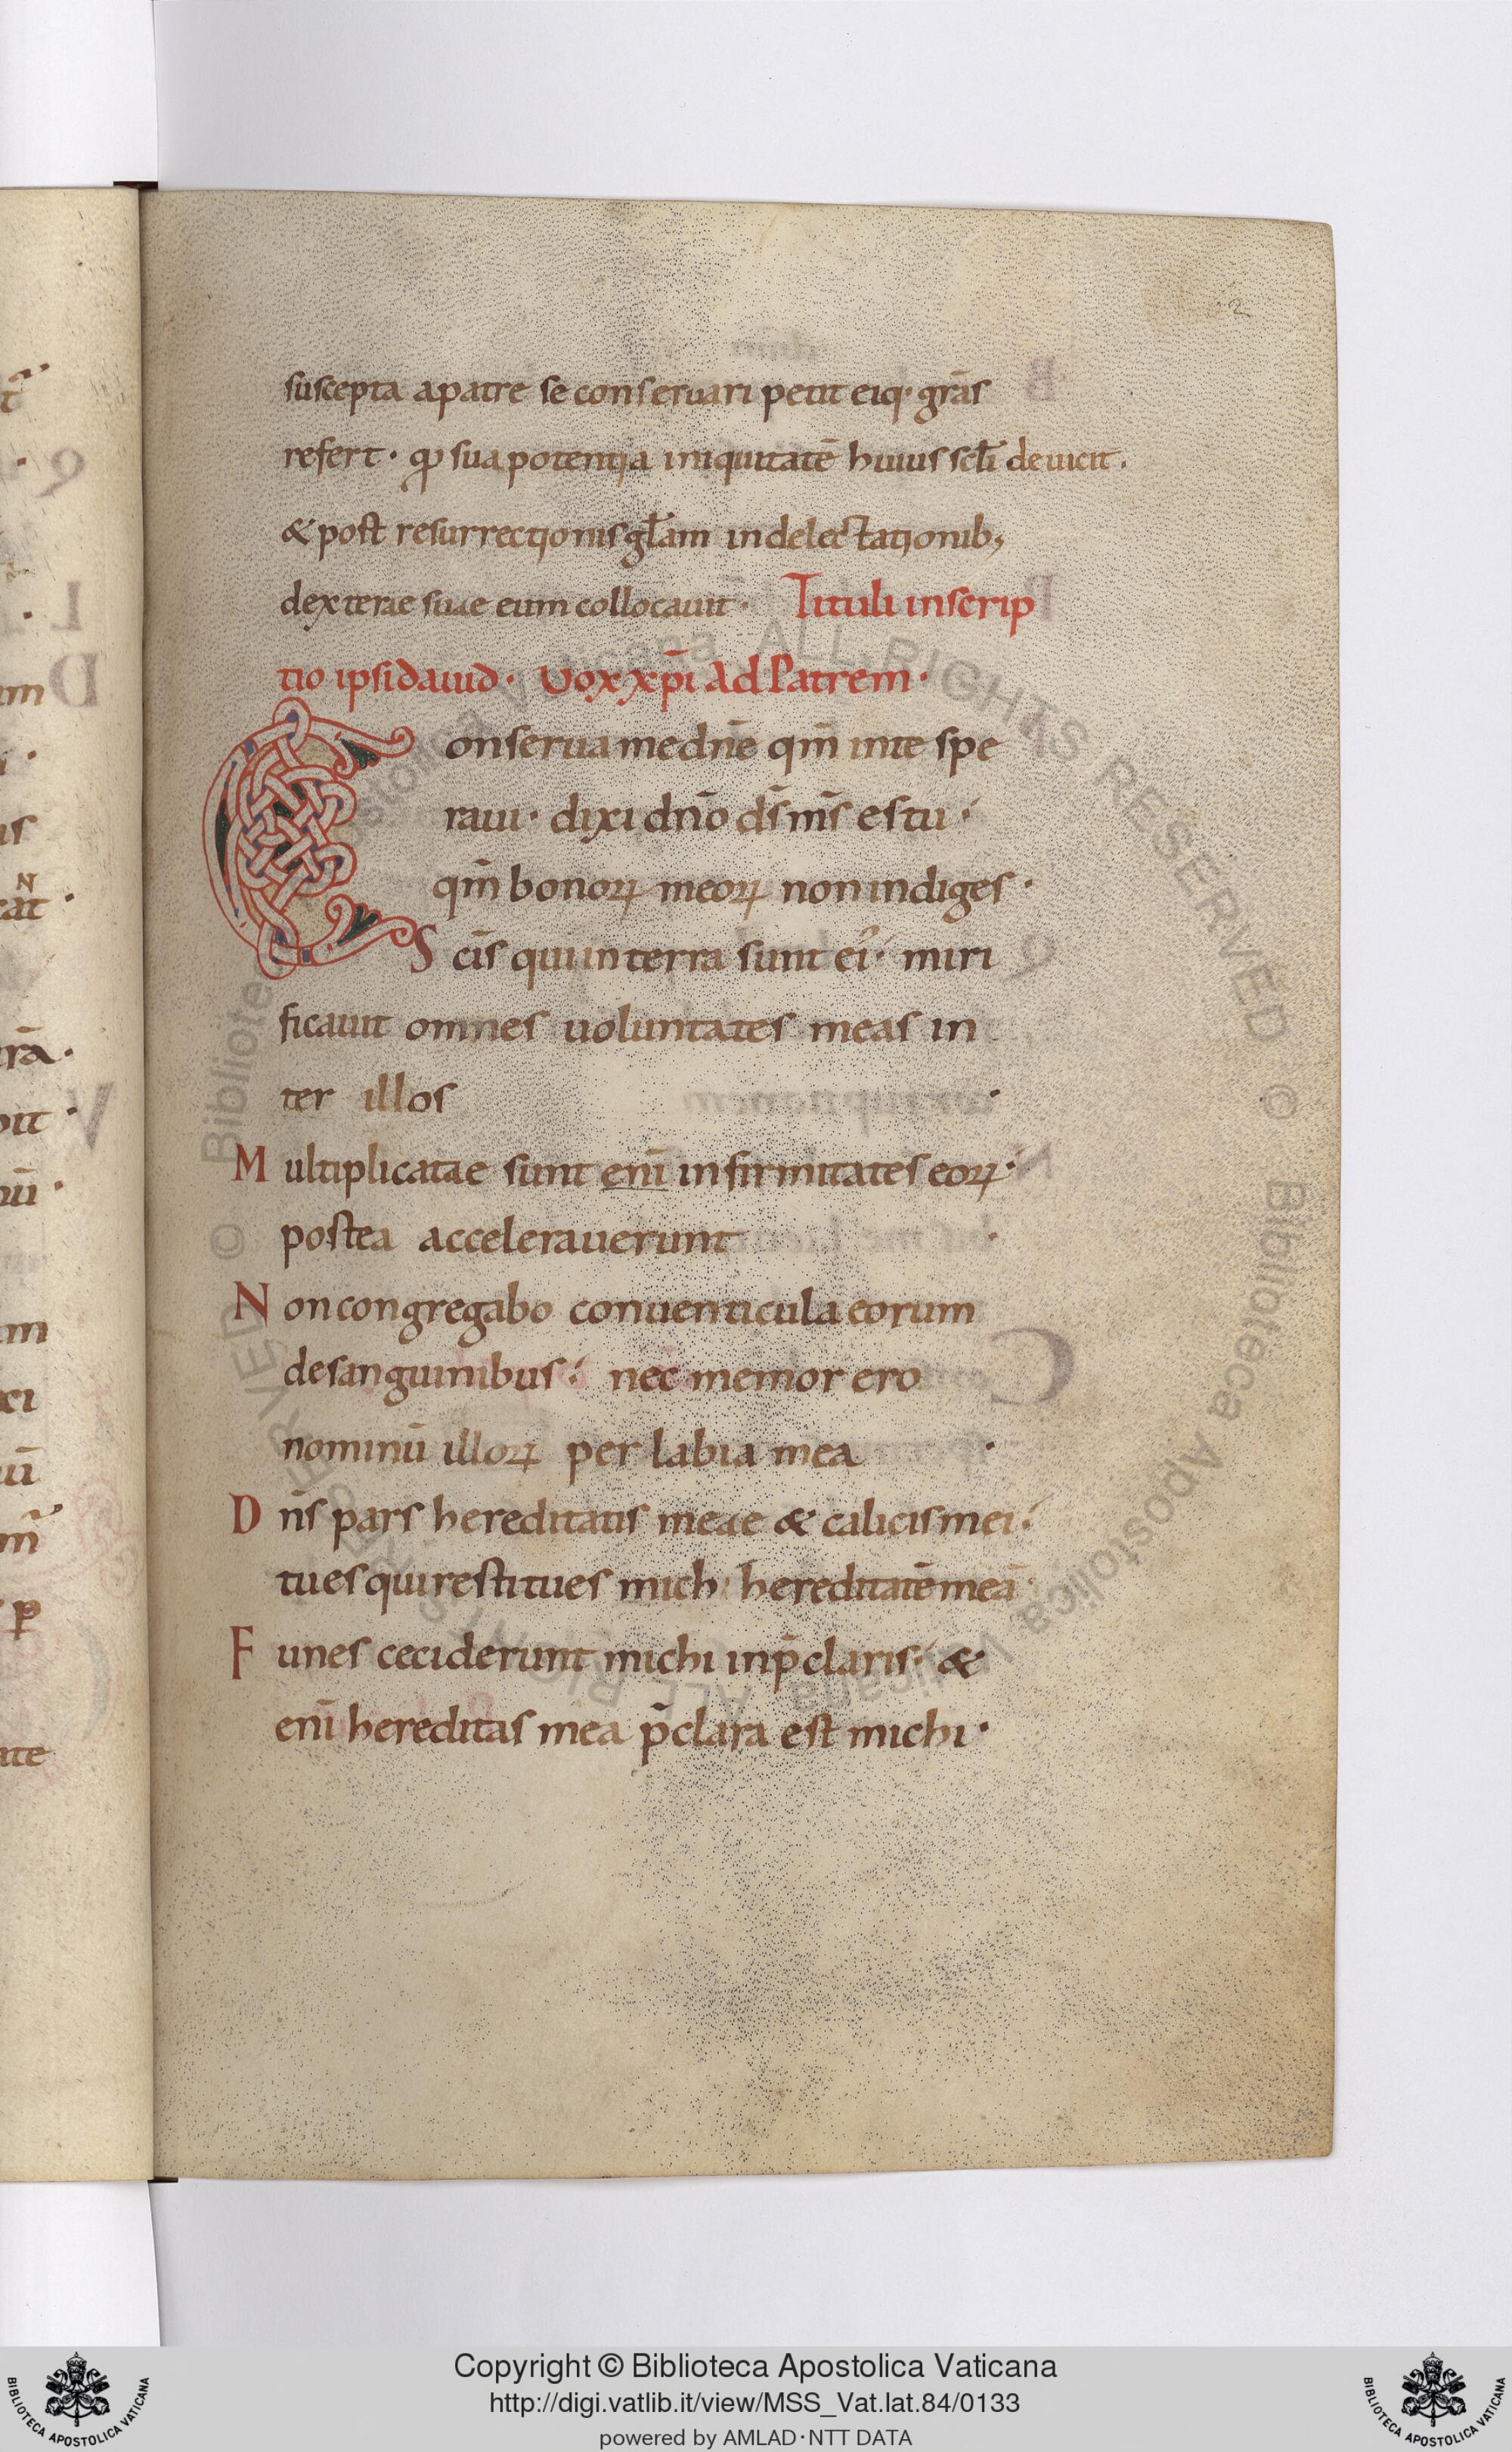 2
suscepta a patre se conseruari petit eiq· grãs
refert · qđ sua potentia iniquitatē huius sc̄li deuicit .
& post resurrectionis gl̄am in delectationib;
dexterae suae eum collocauit · Tituli inscrip
tio ipsi dauid · Uox xp̄i Ad Patrem ·
Conserua me dñe qm̄ in te spe
raui · dixi dño ds̄ ms̄ es tu ·
qm̄ bonoꝝ meoꝝ non indiges ·
S cīs qui in terra sunt ei᾽ · miri
ficauit omnes uoluntates meas in
ter illos ·
M ultiplicatae sunt enī infirmitates eoꝝ ·
postea accelerauerunt ·
N on congregabo conuenticula eorum
de sanguinibus · nec memor ero
nominū illoꝝ per labia mea ·
D ñs pars hereditatis meae & calicis mei ·
tu es qui restitues michi hereditatē meā
F unes ceciderunt michi in p̄claris · &
enī hereditas mea p̄clara est michi ·
Copyright © Biblioteca Apostolica Vaticana
http://digi.vatlib.it/view/MSS_Vat.lat.84/0133
powered by AMLAD·NTT DATA
BIBLIOTECA APOSTOLICA VATICANA
BIBLIOTECA APOSTOLICA VATICANA